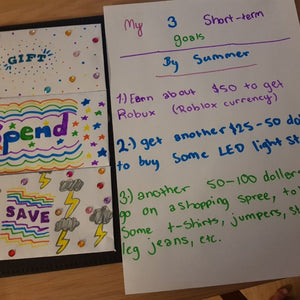 GIFT
Spend
SAVE
My 3 Short-term
goals
By Summer
1.) Earn about $50 to get
Robux (Roblox currency)
2.) get another $25-50 do
to buy some LED light St
3.) another 50-100 doller
go on a shopping spree, to
Some t-shirts, jumpers, s
leg jeans, etc.